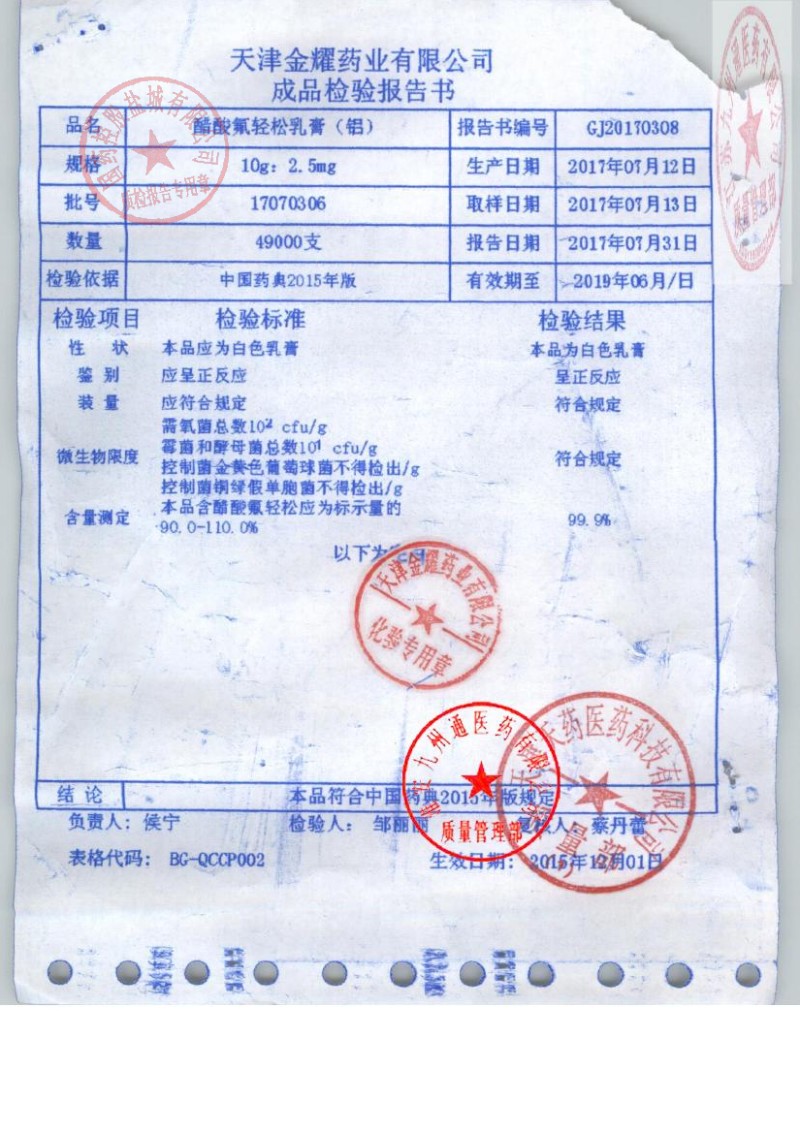 天津金耀药业有限公司
成品检验报告书
品名 醋酸氟轻松乳膏（铝） 报告书编号 GJ20170308
规格 10g：2.5mg 生产日期 2017年07月12日
批号 17070306 取样日期 2017年07月13日
数量 49000支 报告日期 2017年07月31日
检验依据 中国药典2015年版 有效期至 2019年06月/日
检验项目 检验标准 检验结果
性 状 本品应为白色乳膏 本品为白色乳膏
鉴 别 应呈正反应 呈正反应
装 量 应符合规定 符合规定
需氧菌总数10² cfu/g
霉菌和酵母菌总数10¹ cfu/g
微生物限度 符合规定
控制菌金黄色葡萄球菌不得检出/g
控制菌铜绿假单胞菌不得检出/g
本品含醋酸氟轻松应为标示量的
含量测定 90.0-110.0% 99.9%
以下为空白
天津金耀药业有限公司
化验专用章
结 论 本品符合中国药典2015年版规定
负责人：侯宁 检验人：邹丽丽 复核人：蔡丹蕾
表格代码：BG-QCCP002 生效日期：2015年12月01日
国药控股盐城有限公司
质检报告专用章
九州通医药有限公司
质量管理部
天药医药科技有限公司
质量管理部